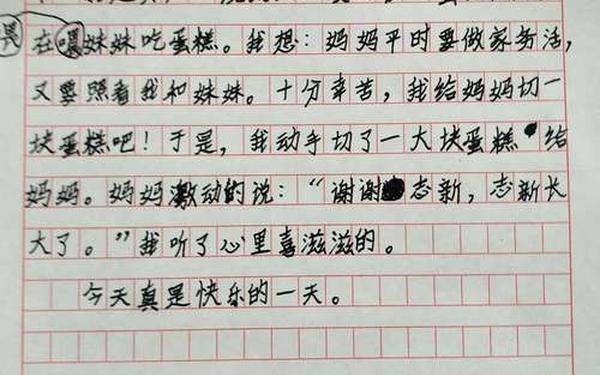 畏
在喂妹妹吃蛋糕。我想：妈妈平时要做家务活，
又要照看我和妹妹。十分幸苦，我给妈妈切一
块蛋糕吧！于是，我动手切了一大块蛋糕给
妈妈。妈妈激动的说：“谢谢志新，志新长
大了。”我听了心里喜滋滋的。
今天真是快乐的一天。